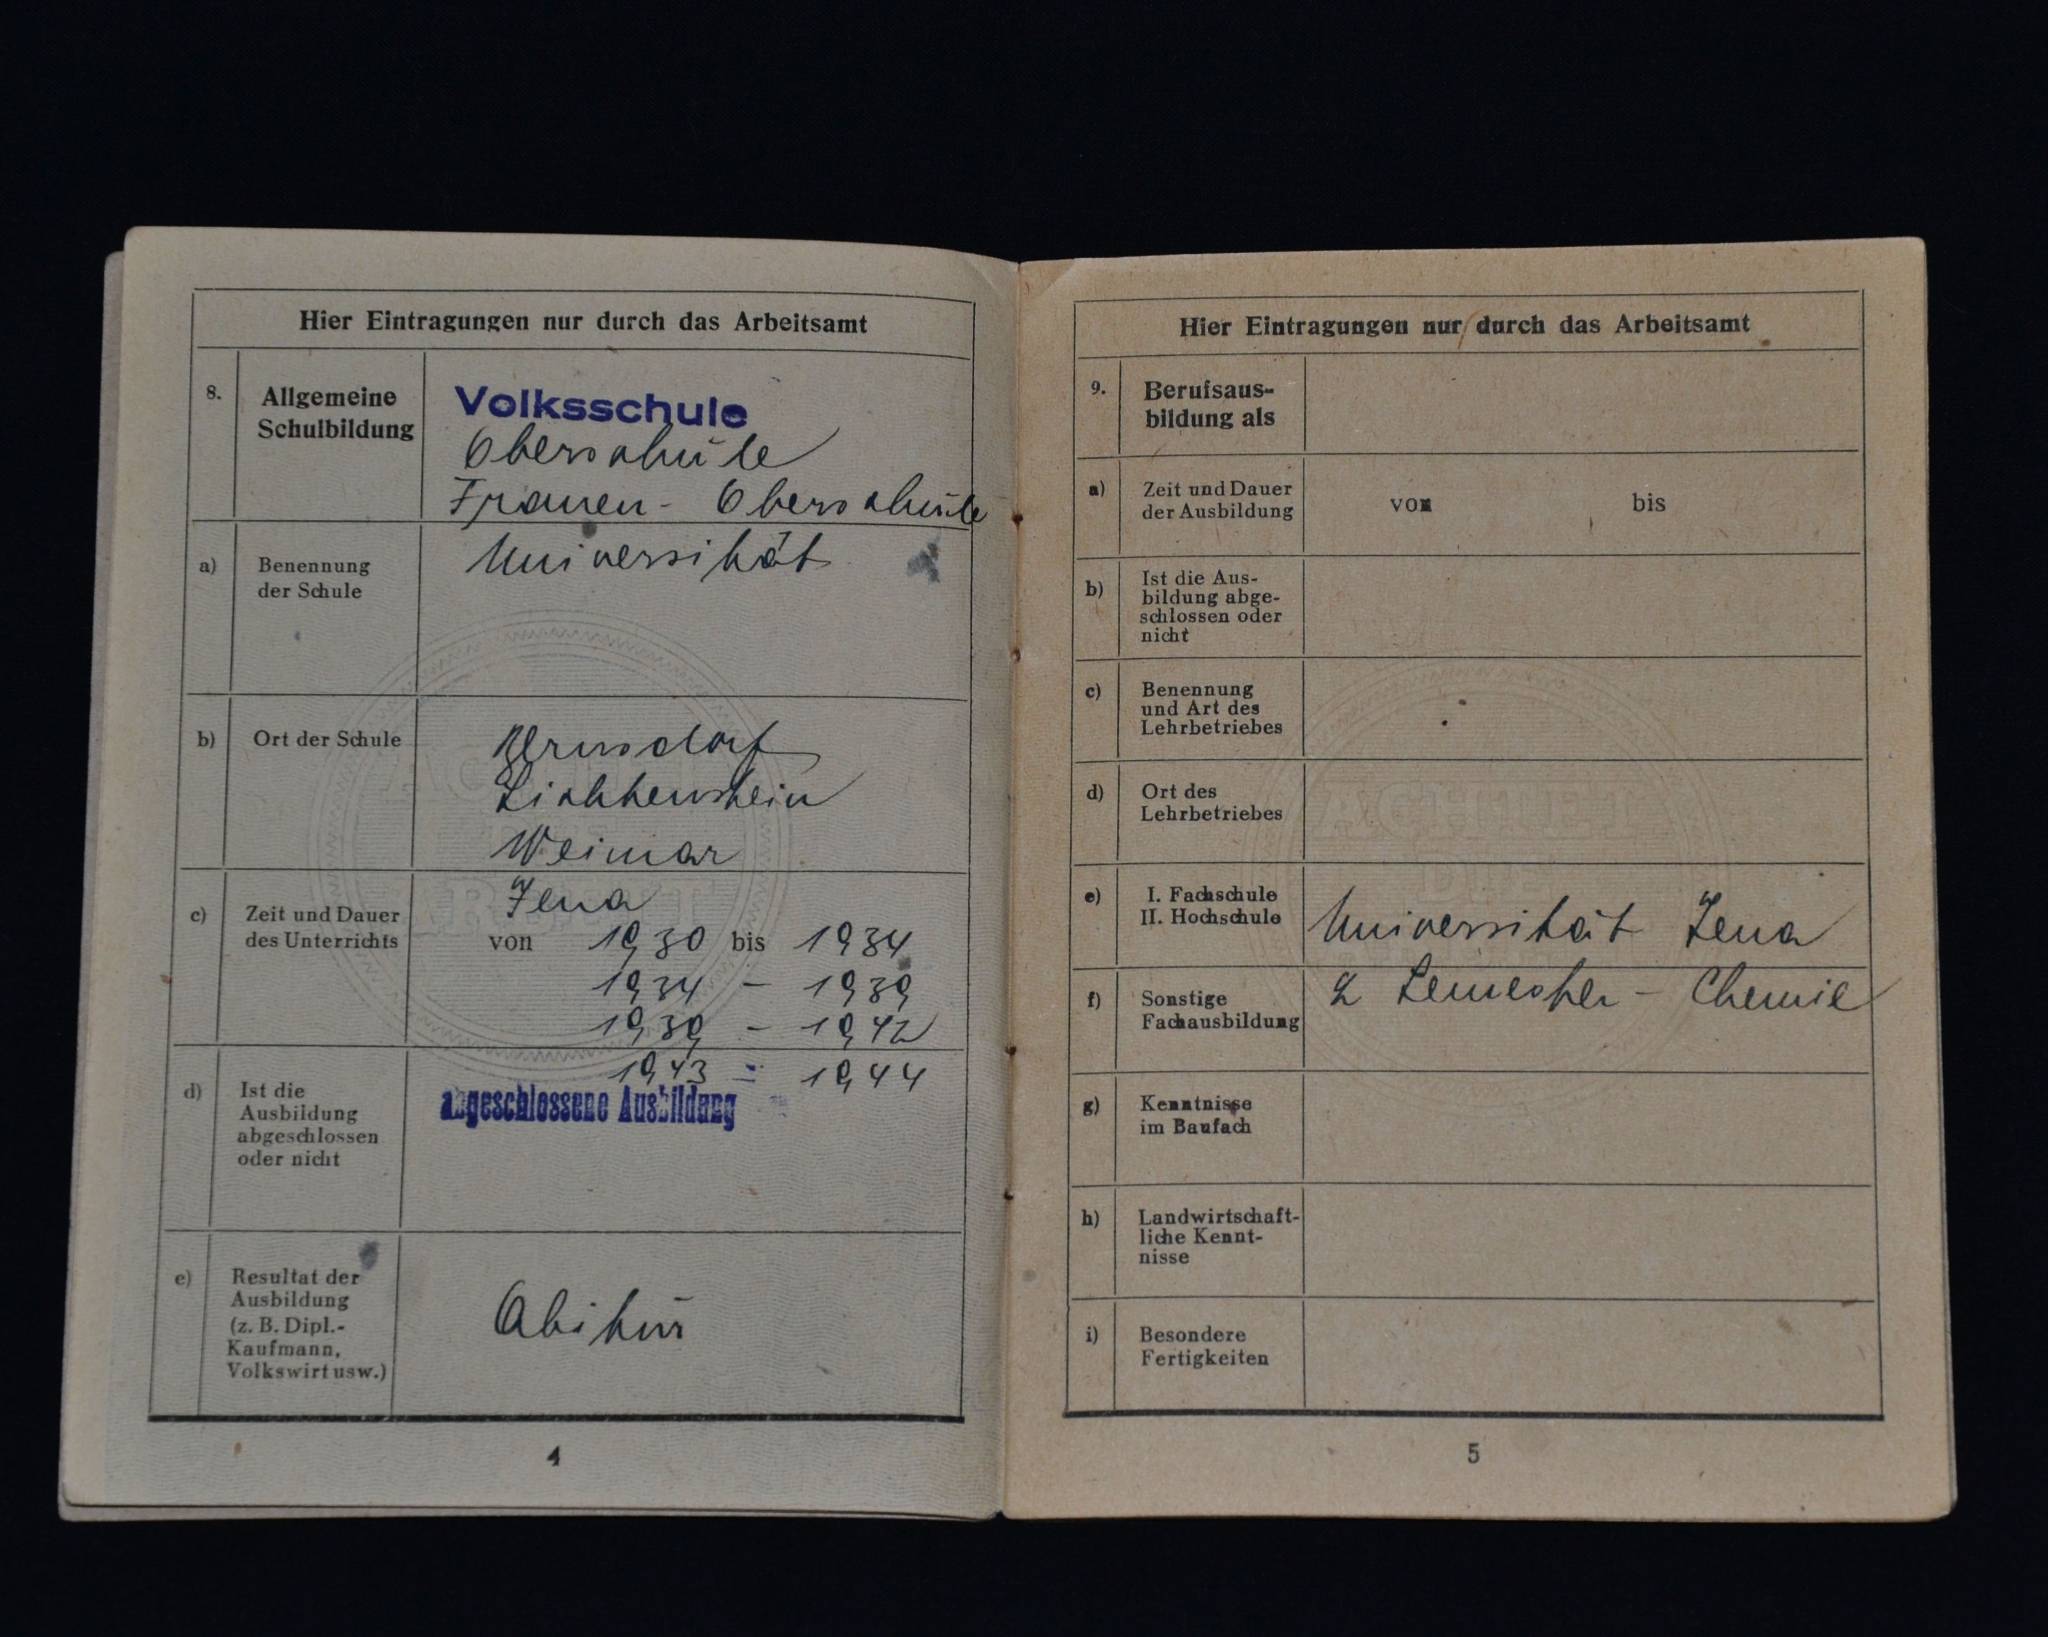 Hier Eintragungen nur durch das Arbeitsamt
8. Allgemeine
Schulbildung
Volksschule
Oberschule
Frauen-Oberschule
a) Benennung
der Schule
Universität
b) Ort der Schule
Bernsdorf
Lichtenstein
Weimar
Jena
c) Zeit und Dauer
des Unterrichts
von 1930 bis 1934
1934 - 1939
1939 - 1942
1943 - 1944
d) Ist die
Ausbildung
abgeschlossen
oder nicht
abgeschlossene Ausbildung
e) Resultat der
Ausbildung
(z. B. Dipl.-
Kaufmann,
Volkswirt usw.)
Abitur
4
Hier Eintragungen nur durch das Arbeitsamt
9. Berufsaus-
bildung als
a) Zeit und Dauer
der Ausbildung
von bis
b) Ist die Aus-
bildung abge-
schlossen oder
nicht
c) Benennung
und Art des
Lehrbetriebes
d) Ort des
Lehrbetriebes
e) I. Fachschule
II. Hochschule
Universität Jena
2 Semester - Chemie
f) Sonstige
Fachausbildung
g) Kenntnisse
im Baufach
h) Landwirtschaft-
liche Kennt-
nisse
i) Besondere
Fertigkeiten
5
ACHTET
DIE
ARBEIT